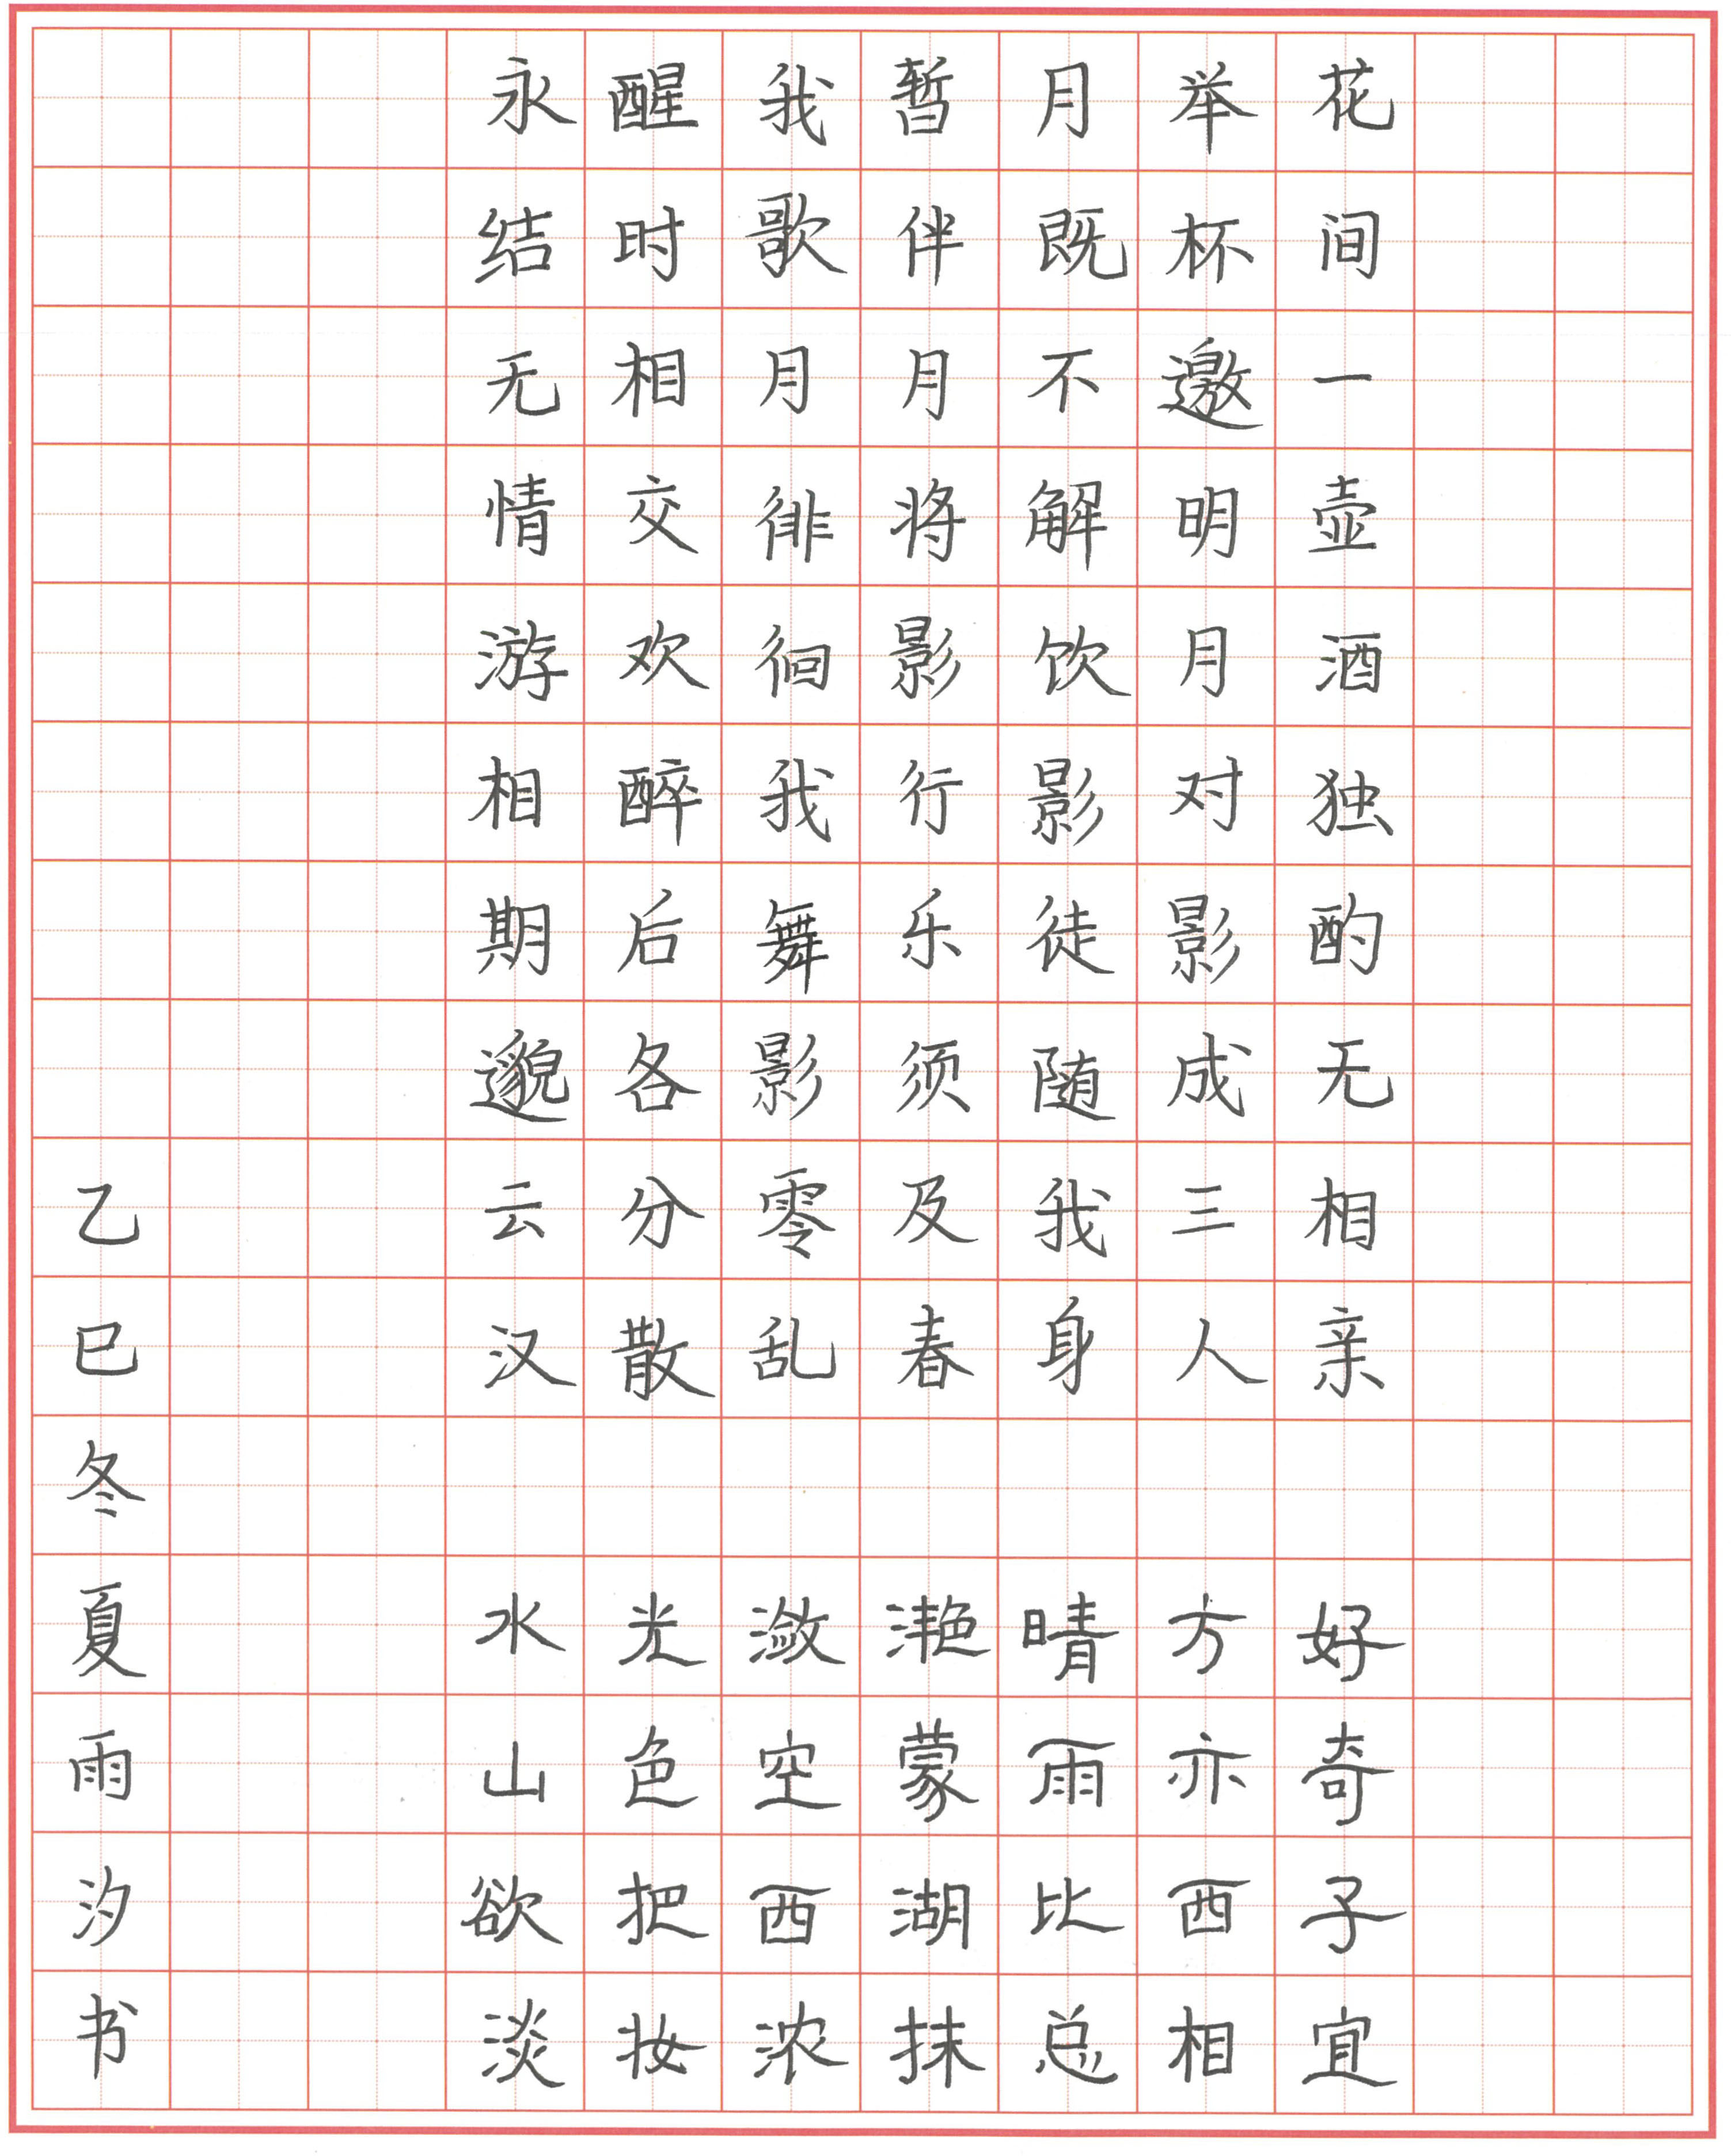 花间一壶酒独酌无相亲
举杯邀明月对影成三人
月既不解饮影徒随我身
暂伴月将影行乐须及春
我歌月徘徊我舞影零乱
醒时相交欢醉后各分散
永结无情游相期邈云汉
水光潋滟晴方好
山色空蒙雨亦奇
欲把西湖比西子
淡妆浓抹总相宜
乙巳冬夏雨汐书